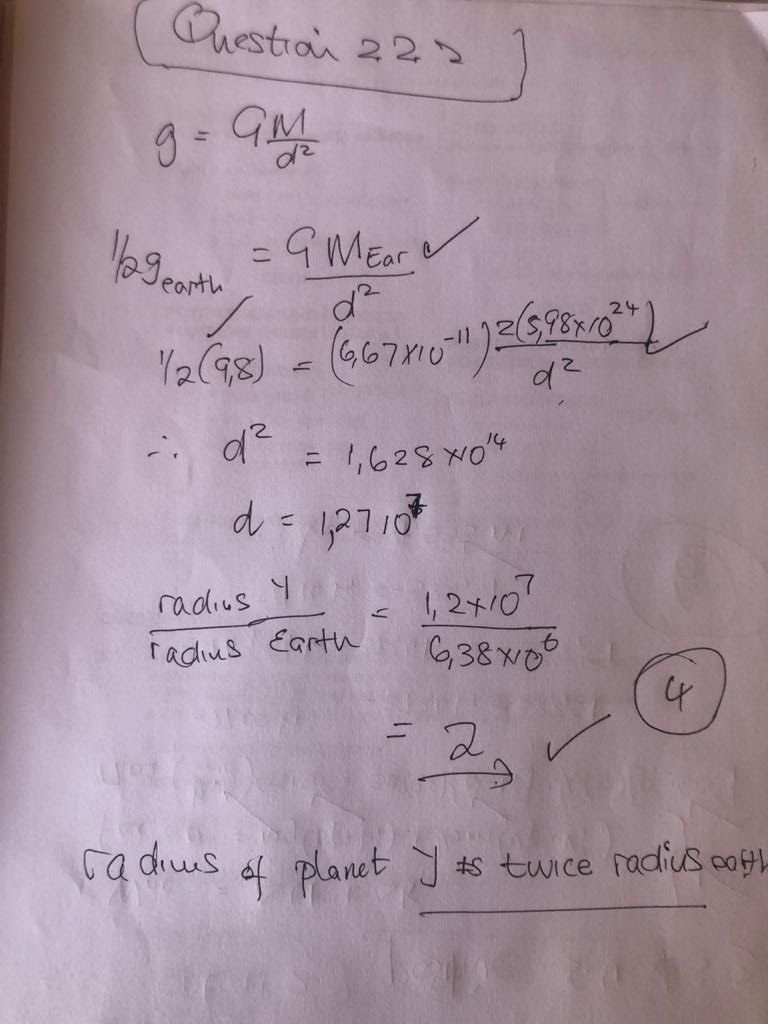 Question 2 2 2
g = GM/d²
1/2 g earth = G M Ear/d² ✓
1/2(9,8) = (6,67×10⁻¹¹) 2(5,98×10²⁴)/d² ✓
∴ d² = 1,628×10¹⁴
d = 1,27 10⁷
radius Y/radius Earth = 1,2×10⁷/6,38×10⁶
4
= 2 ✓
radius of planet Y is twice radius earth